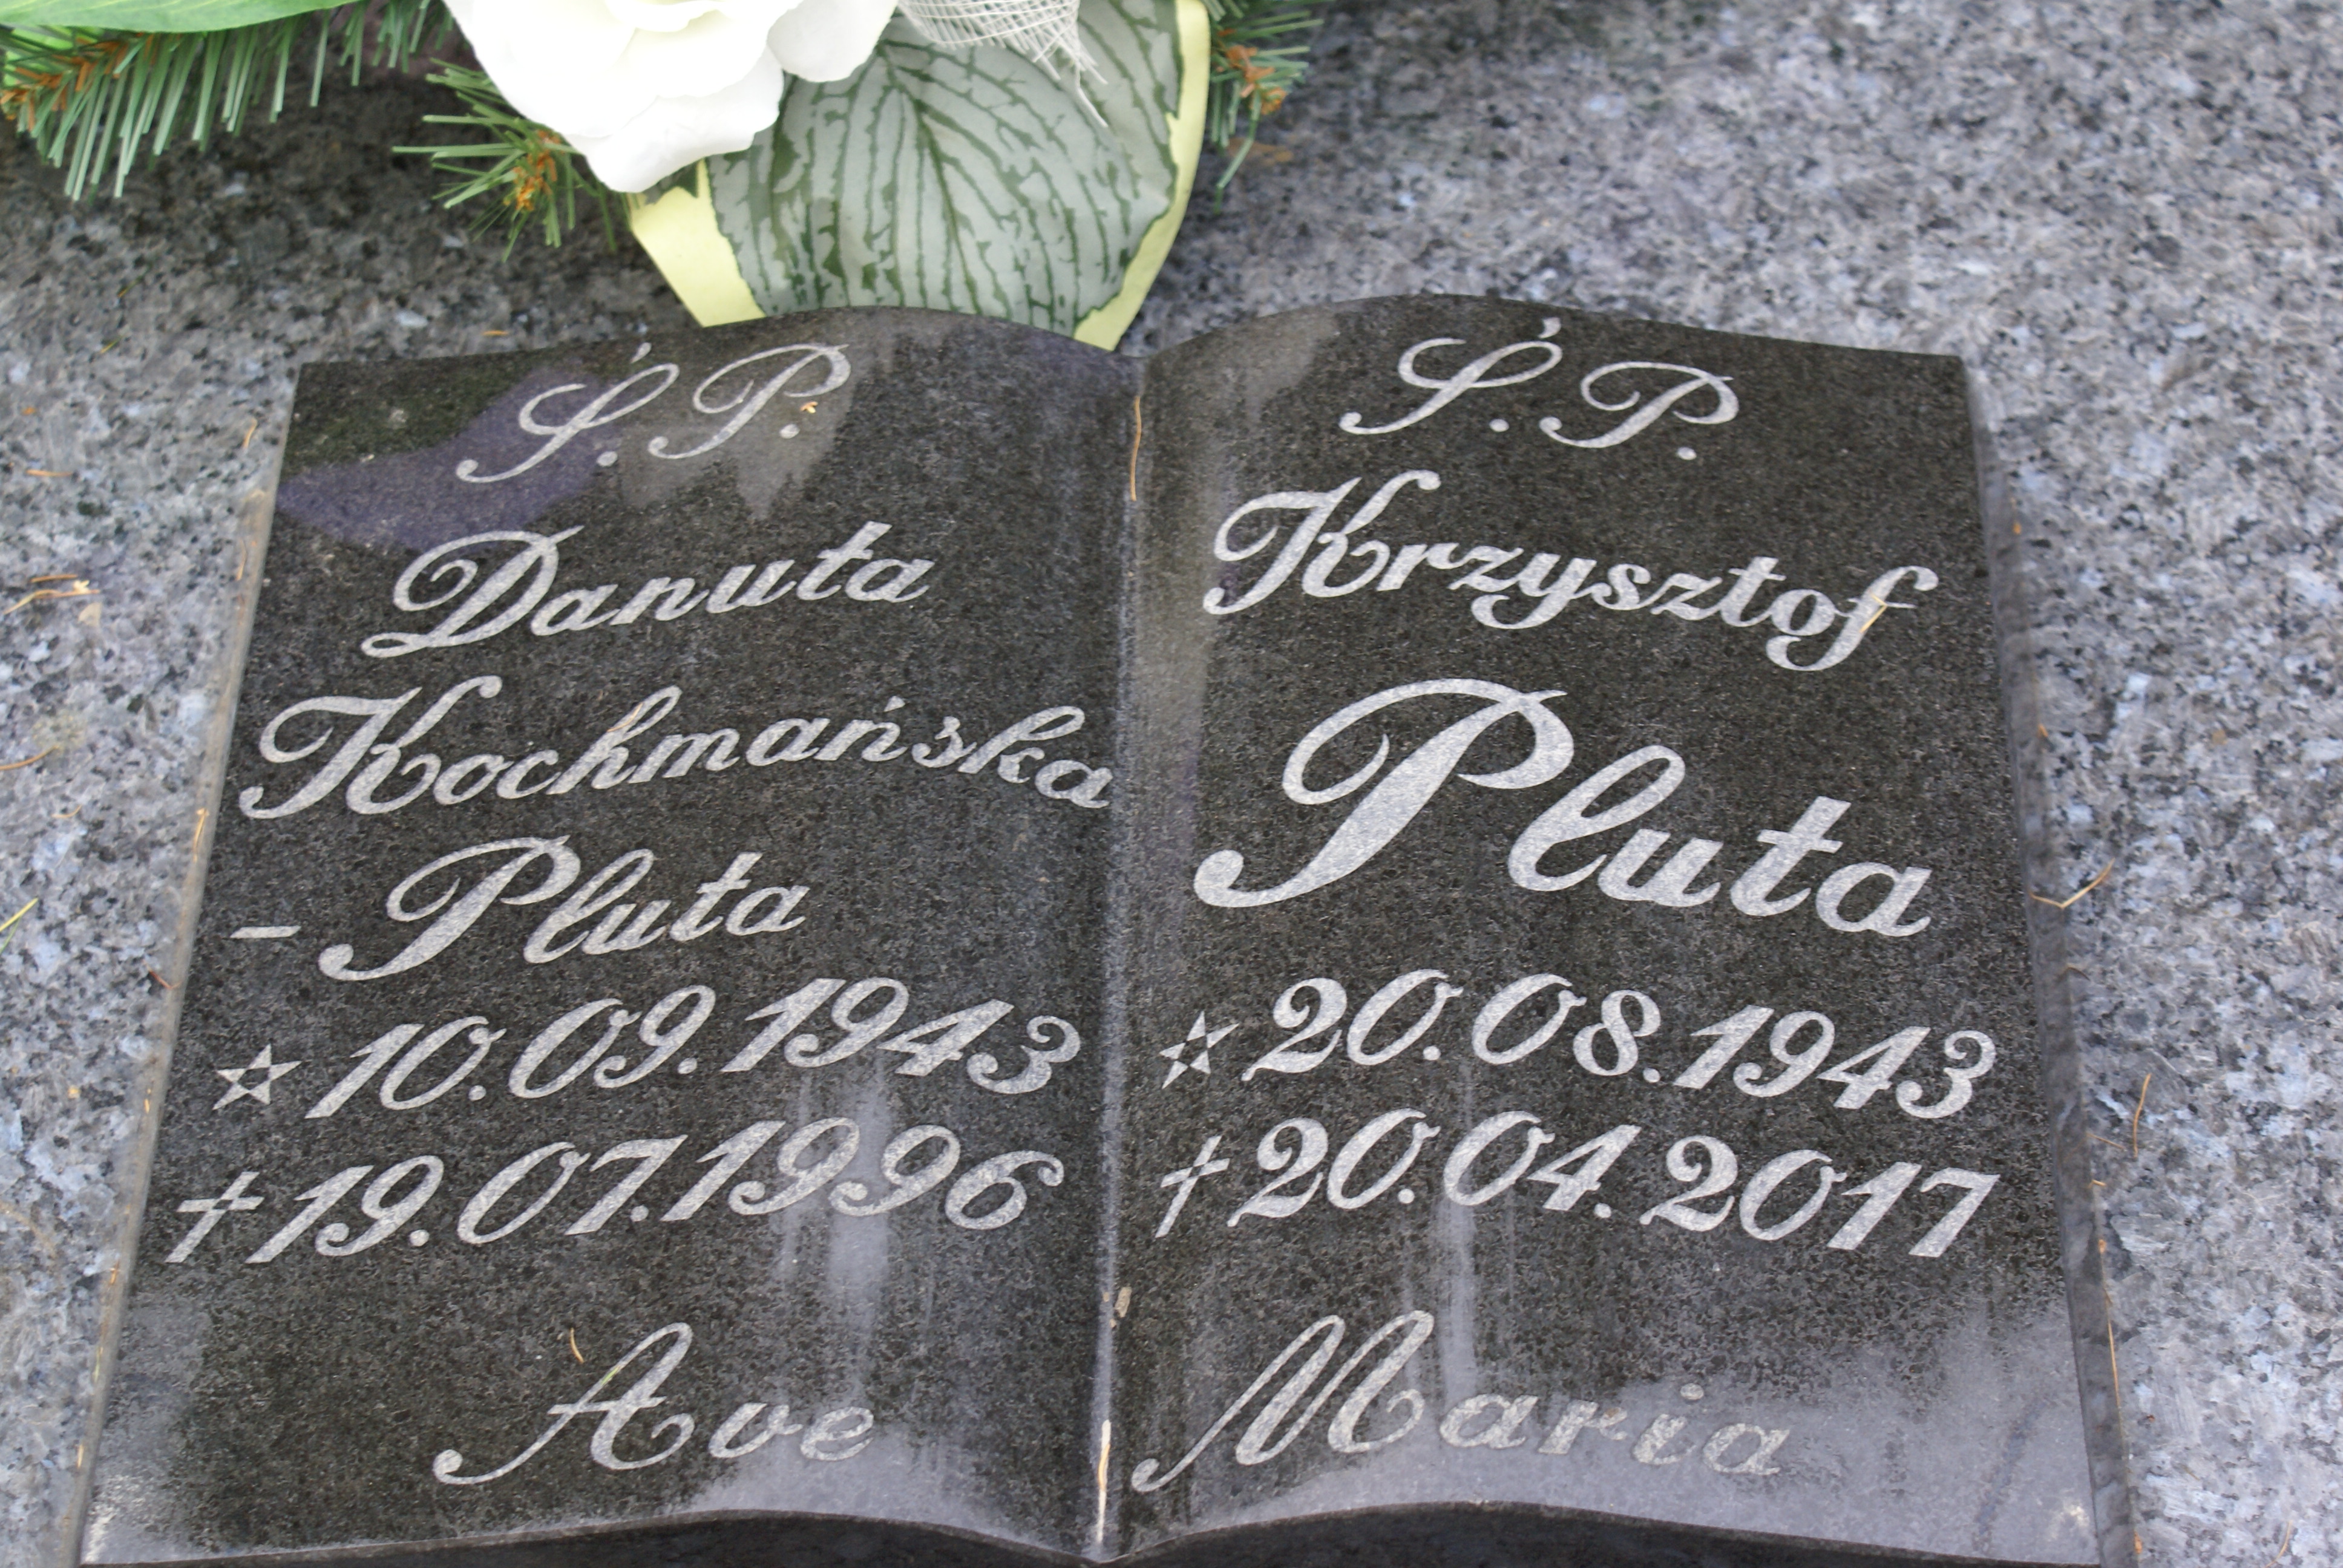 Ś.P.
Danuta
Kochmańska
- Pluta
☆ 10.09.1943
† 19.07.1996
Ave
Ś.P.
Krzysztof
Pluta
☆ 20.08.1943
† 20.04.2017
Maria